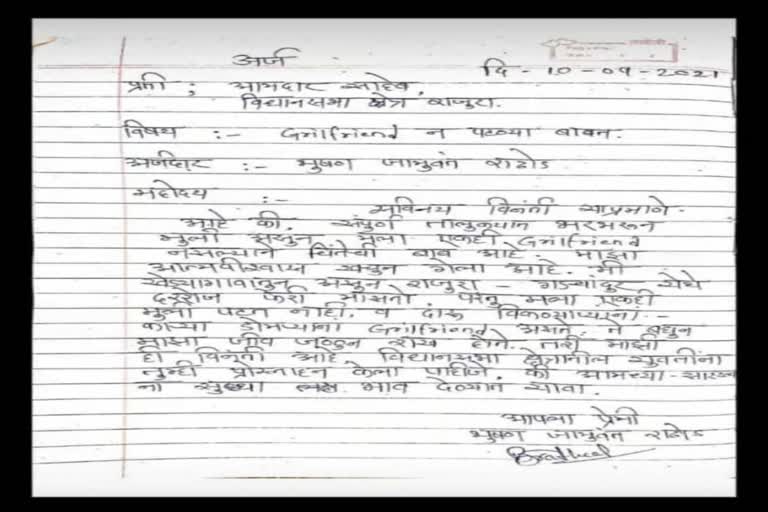 अर्ज
दि - 10-09-2021
प्रती ; आमदार साहेब,
विधानसभा क्षेत्र राजुरा.
विषय :- Grilfriend न पटण्या बाबत.
अर्जदार :- भुषण जामुवंत राठोड
महोदय :-
सविनय विनंती याप्रमाणे
आहे की. संपुर्ण तालुक्यात भरभरून
मुली असुन, मला एकही Grilfriend
नसल्याने चिंतेची बाब आहे. माझा
आत्मवीश्वास खचुन गेला आहे. मी
खेड्यागावातुन असुन राजुरा - गडचांदुर येथे
दररोज फेरी मारतो. परंतु मला एकही
मुली पटत नाही. व दारु विकणाऱ्यांना -
काऱ्या डोमड्यांना Grilfriend असते. ते बघुन
माझा जीव जळुन राख होते. तरी माझी
ही विनंती आहे. विधानसभा क्षेत्रातील युवतींना
तुम्ही प्रोत्साहन केला पाहीजे. की आमच्या -सारख्या
ना सुध्दा भाव देण्यात यावा.
आपला प्रेमी
भुषण जामुवंत राठोड